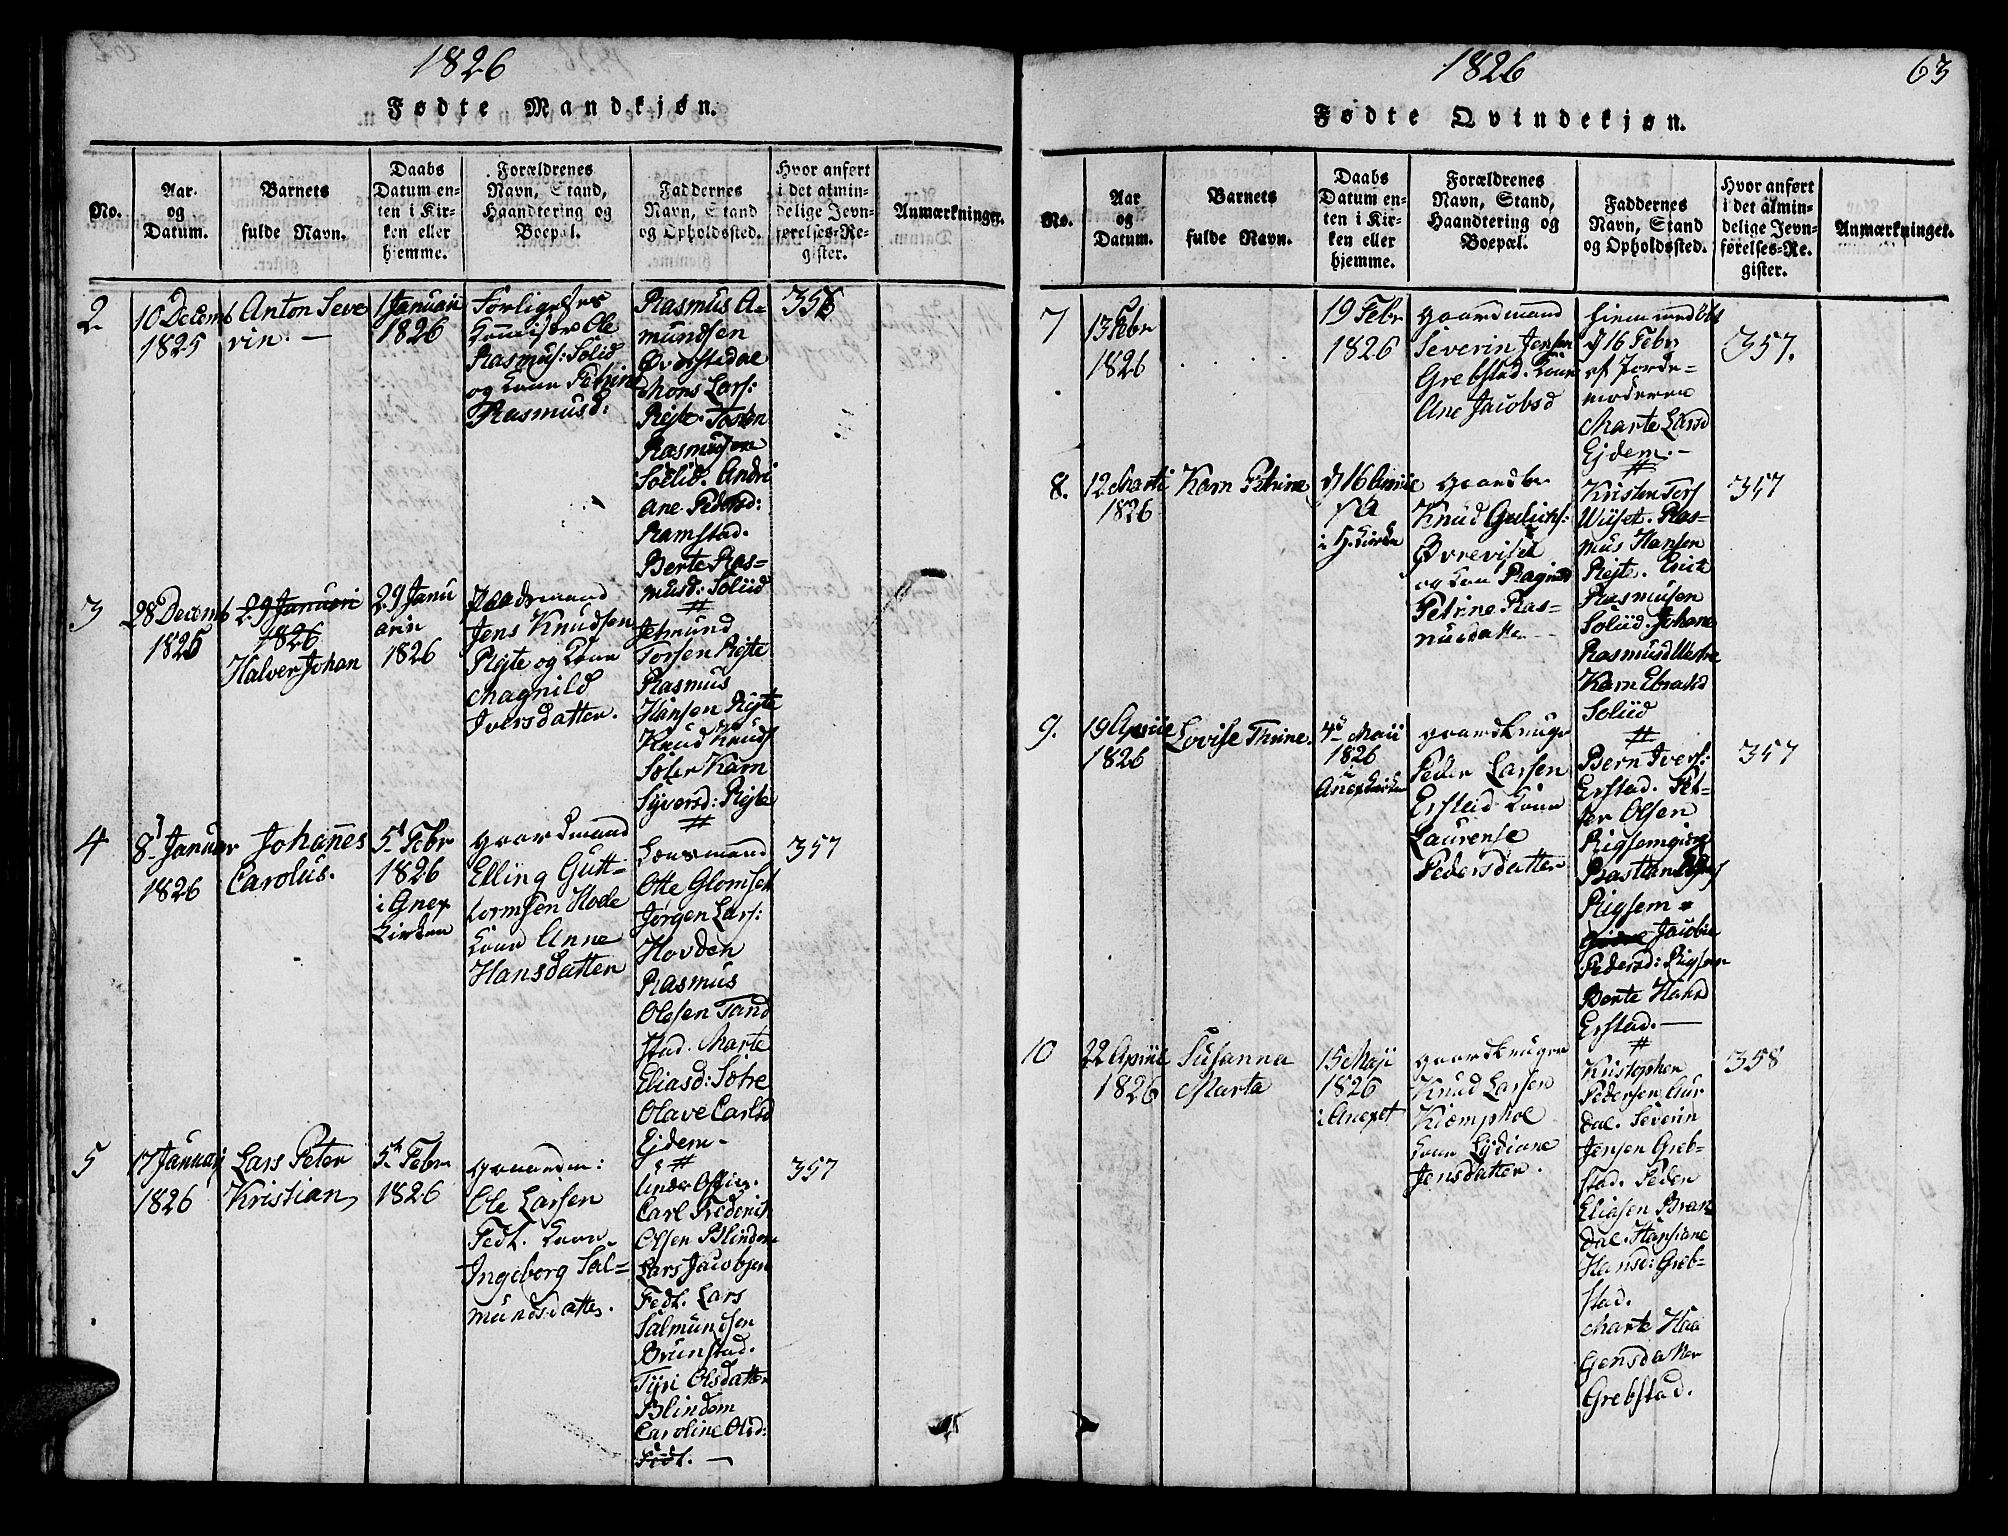 1826
Fødte Mandkjøn.
No.
Aar og Datum.
Barnets fulde Navn.
Daabs Datum enten i Kirken eller hjemme.
Forældrenes Navn, Stand, Haandtering og Boepæl.
Faddernes Navn, Stand og Opholdssted.
Hvor anført i det almindelige Jevnførelses-Register.
Anmærkninger.
2.
10 Decemb
1825
Anton Seve
rin. —
1 Januari
1826
Ole
Rasmus: Solid
og Kone Petrine
Rasmusd:
Rasmus A-
mundsen
Øvrestedal
Mons Lars:
Rejte. Tosten
Rasmusen
Soelid. Andri
Ane Pedersd:
Ramstad.
Berte Ras-
musd: Soliid
358
3
28 Decemb
1825
29 Januari
1826
Halver Johan
29 Janu
arii
1826
Jens Knudsen
Rejte og Kone
Magnild
Iversdatter.
Jetmund
Torsen Rejte
Rasmus
Hansen Rejte
Knud Knuds
Søter Karn
Syversd: Rejte
4
8 Januar
1826
Johannes
Carolus.
5 Febr
1826
i Anex
Kirken
Gaardmand
Elling Gutt-
ormsen Hode
Kone Anne
Hansdatter
Lensmand
Otte Glomset
Jørgen Lars:
Hovden
Rasmus
Olesen Tand
stad. Marte
Eliasd: Søtre
Olave Carlsd
Ejdem-
357
5
17 Januarj
1826
Lars Peter
Kristian
5 Febr
1826
Gaardm:
Ole Larsen
Fedt. Kone
Ingeborg Sal=
mundsdatter.
Under Offic.
Carl Frederich
Olsen Blindem
Lars Jacobsen
Fedt. Lars
Salmundsen
Brunstad.
Tyri Olsdatter
Blindem
Caroline Olsd:
Fedt. —
357
1826
63
Fødte Qvindekjøn.
No.
Aar og Datum.
Barnets fulde Navn.
Daabs Datum enten i Kirken eller hjemme.
Forældrenes Navn, Stand, Haandtering og Boepæl.
Faddernes Navn, Stand og Opholdssted.
Hvor anført i det almindelige Jevnførelses-Register.
Anmærkninger.
7
13 Febr
1826
19 Febr
1826
Gaardmand
Severin Jensen
Grebstad. Kone
Ane Jacobsd
Hiemmedøbt
d 16 Febr
af Jorde-
moderen
Marte Larsd
Ejdem. -
357.
8.
12 Marti
1826
Karn Petrine
d 16 April
i H. Kirke
Knud
Øvreviset
og Kone Ragnild
Petrine Ras-
musdatter
Kristen Tors
Wiiset. Ras-
mus Hansen
Rejte. Erick
Rasmusen
Soliid. Johane
Rasmusd
Karn
Soliid
357
9.
19 April
1826
Lovise Thrine.
4 Maii
1826
Anexkirken
Gaardbruger
Peder Larsen
Erstad Kone
Laurense
Pedersdatter
Bern Ivers:
Erstad. Pet-
ter Olsen
Rigsemgjere
Bastian
Rigsem
Jacobin
Pedersd: Rigsem
Berte Hans
Erstad. —
357
10
22 April
1826
Susanna
Marta
15 Maji
1826
i Anexet
Gaardbruger
Knud Larsen
Klomphoe
Kone Lydiane
Jensdatter.
Kristopher
Pedersen Aur
dal. Severin
Jensen Greb-
stad. Peder
Eliasen Bran
dal. Hansiane
Hansd: Greb-
stad.
Marte Haa
gensdatter
Grebstad.
358